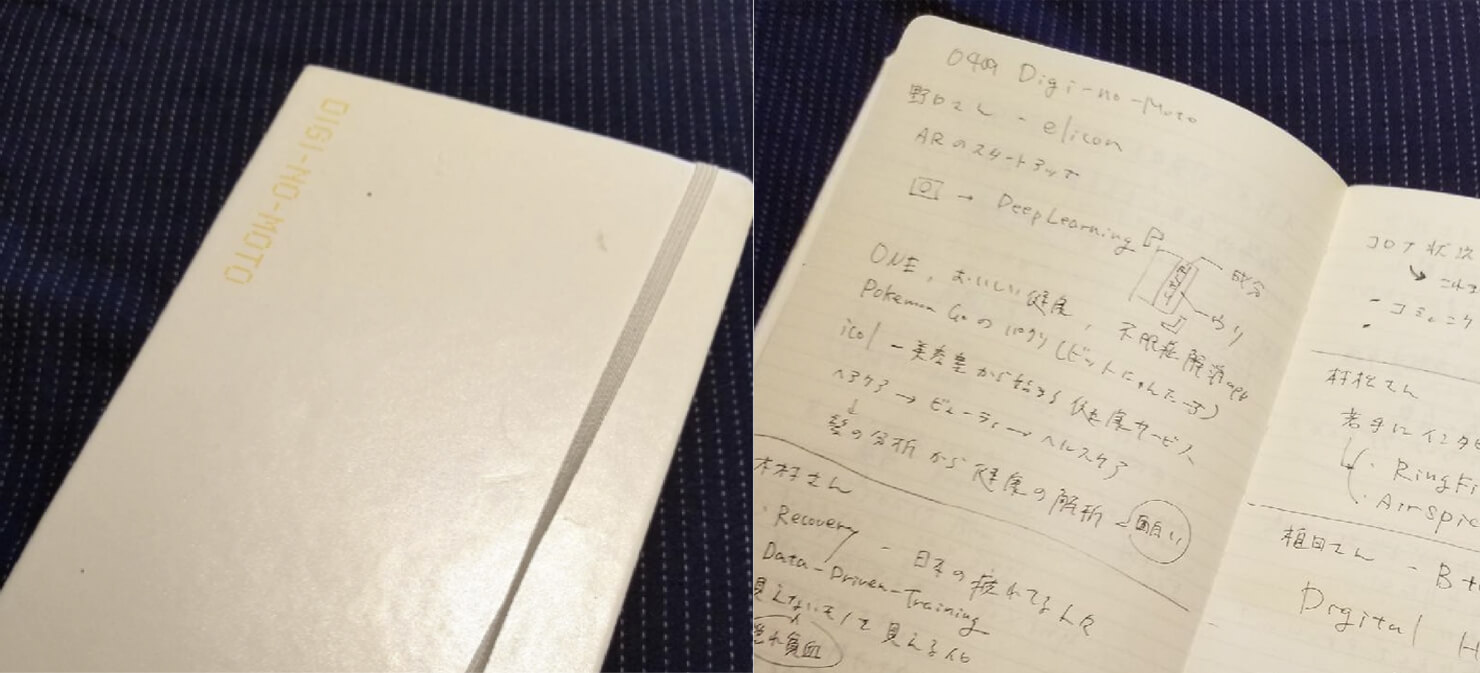 DIGI-NO-MOTO
0409 Digi-no-Moto
野口さん - elicon
ARのスタートアップ
→ DeepLearning
成分
ウリ
ONE, おいしい健康, 不眠症解消app
Pokemon Goのパクリ (ビットにゃんたーず)
icol - 美容室から始まる健康サービス
ヘアケア → ビューティ → ヘルスケア
↓
髪の分析から健康の解析 → 面白い
木村さん
・Recovery - 日本の疲れてる人々
Data-Driven-Training
見えないモノを見える化
隠れ貧血
コロナ状況
- コミュニケ
村松さん
若手にインタビ
・RingFi
・AirSpic
粗田さん - B+
Digital H